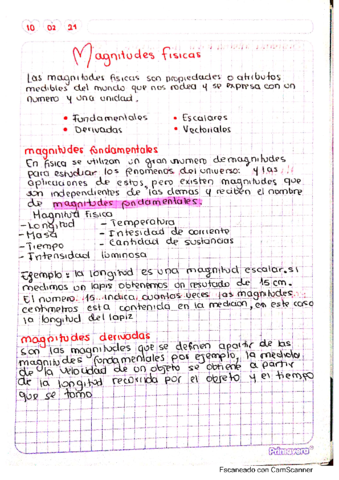 10 02 21
Magnitudes fisicas
Las magnitudes fisicas son propiedades o atributos
medibles del mundo que nos rodea y se expresa con un
numero y una unidad.
• Fundamentales • Escalares
• Derivadas • Vectoriales
magnitudes fundamentales
En fisica se utilizan un gran numero de magnitudes
para estudiar los fenomenos del universo y las
aplicaciones de estos, pero existen magnitudes que
son independientes de las demas y reciben el nombre
de magnitudes fundamentales.
Magnitud fisica
-Longitud - Temperatura
-Masa - Intesidad de corriente
-Tiempo - Cantidad de sustancias
-Intensidad luminosa
Ejemplo: la longitud es una magnitud escalar. si
medimos un lapiz obtenemos un resultado de 15 cm.
El numero 15 indica cuantas veces las magnitudes
centimetros esta contenida en la medicion, en este caso
la longitud del lapiz
magnitudes derivadas
son las magnitudes que se definen apartir de las
magnitudes fondamentales por ejemplo, la medida
de la velocidad de un objeto se obtiene a partir
de la longitud recorrida por el objeto y el tiempo
que se tomo
Primavera
Escaneado con CamScanner